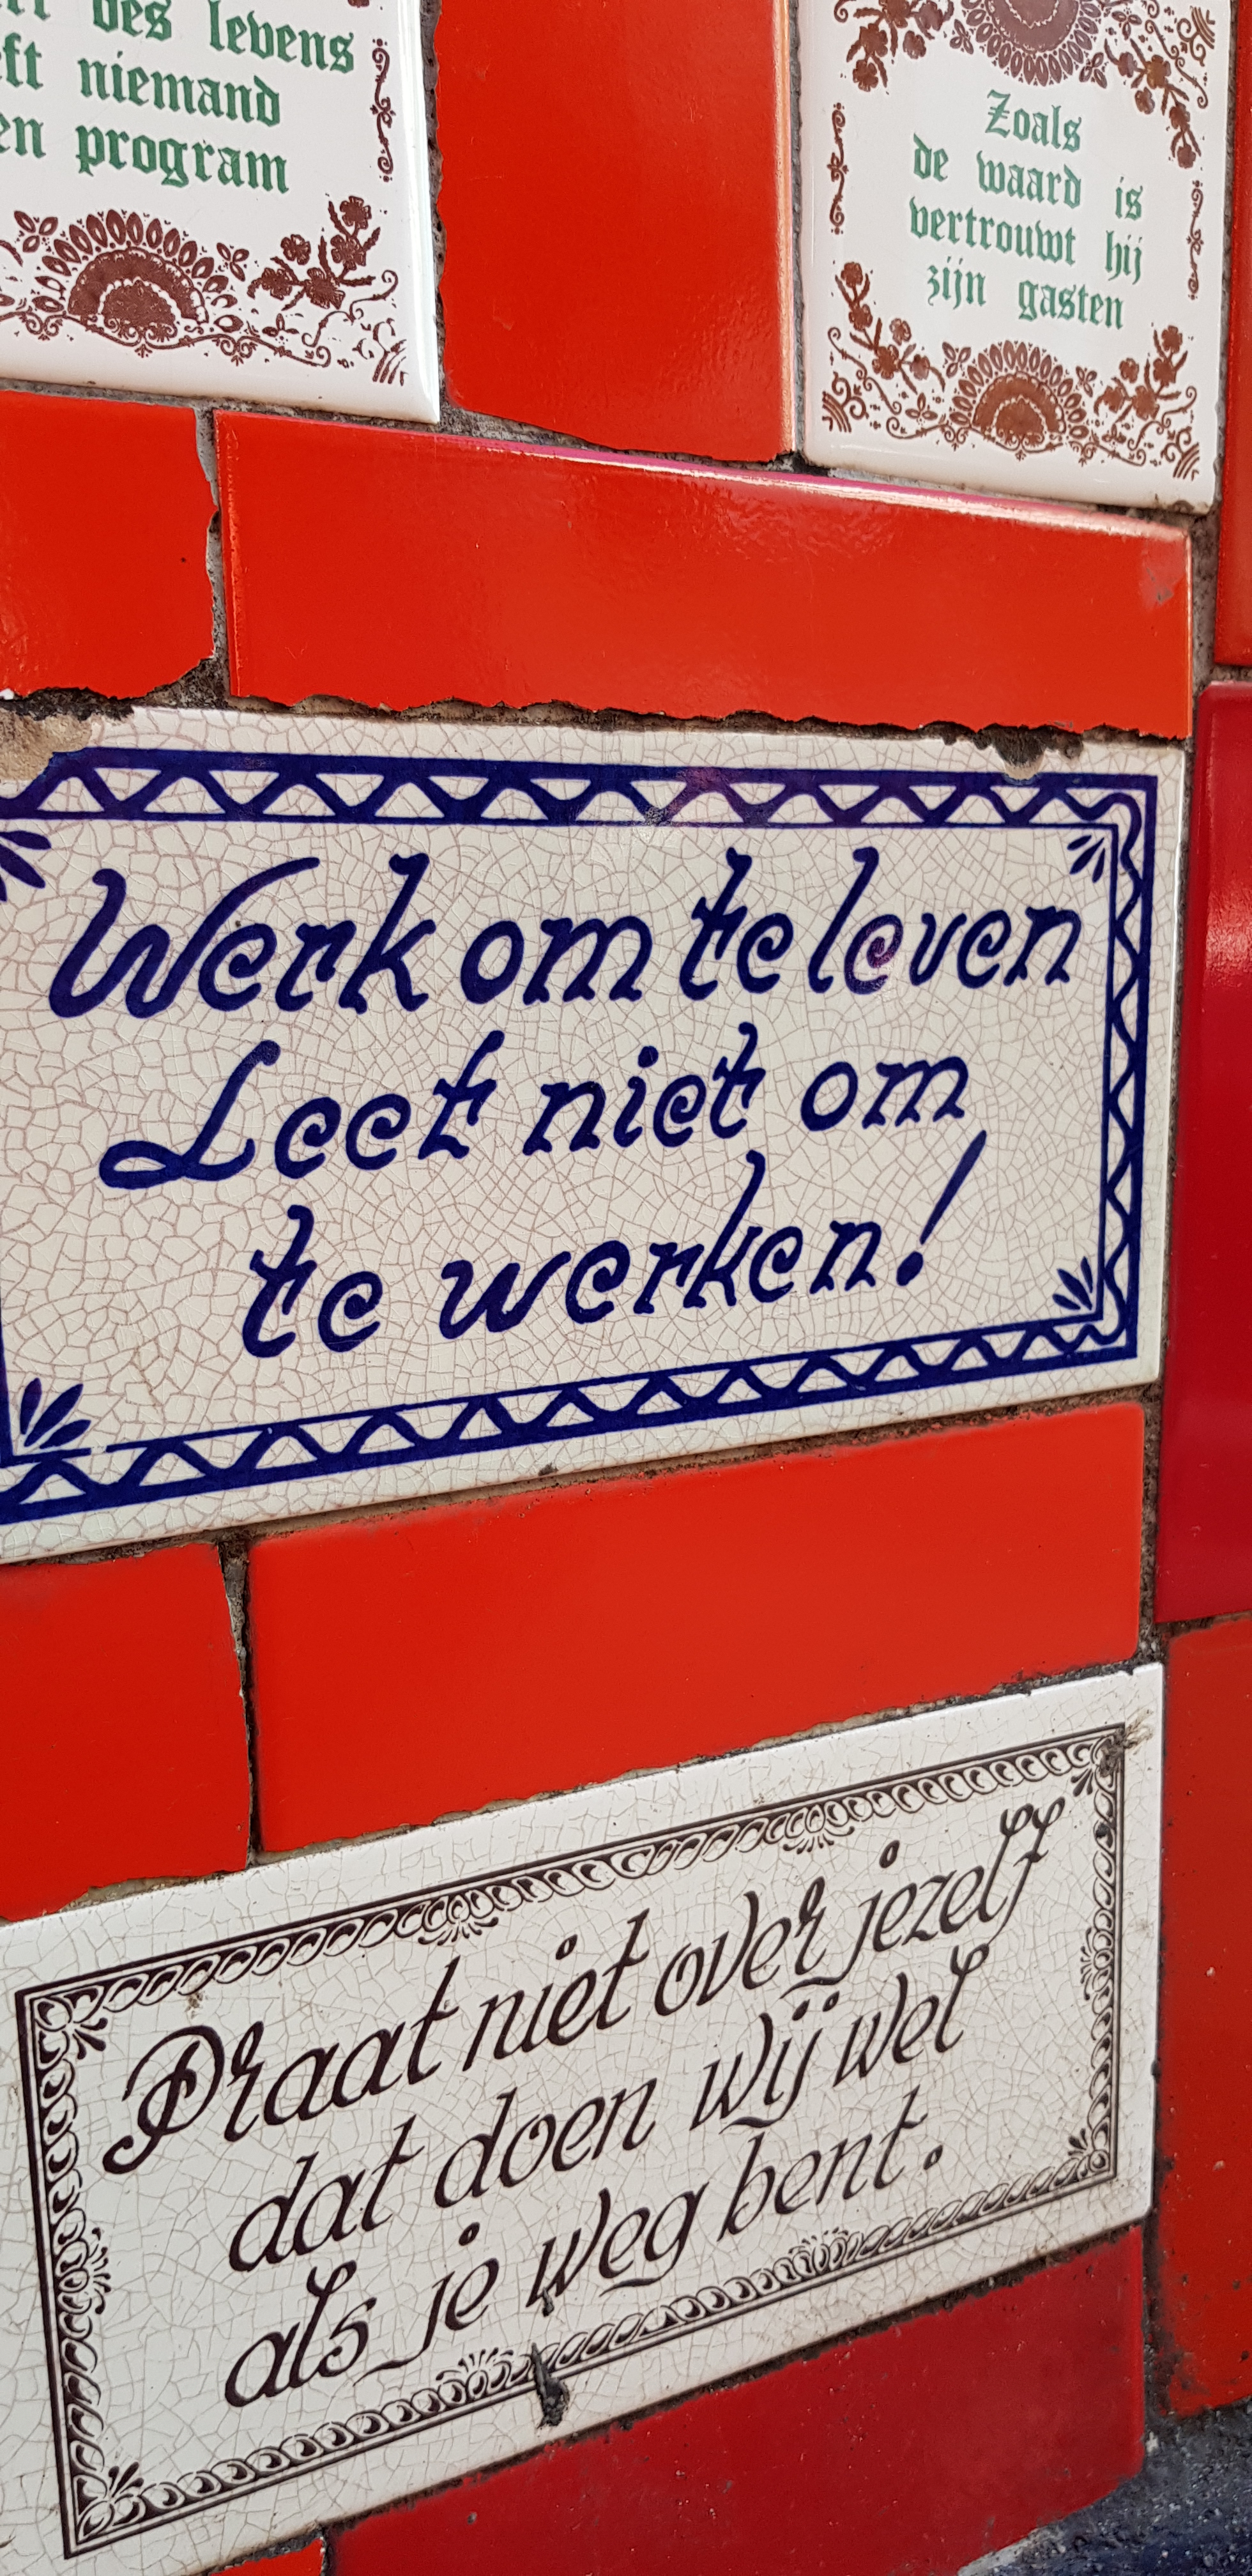 des levens
niemand
program
Zoals
de waard is
vertrouwt hij
zijn gasten
Werk om te leven
Leef niet om
te werken!
Praat niet over jezelf
dat doen wij wel
als je weg bent.